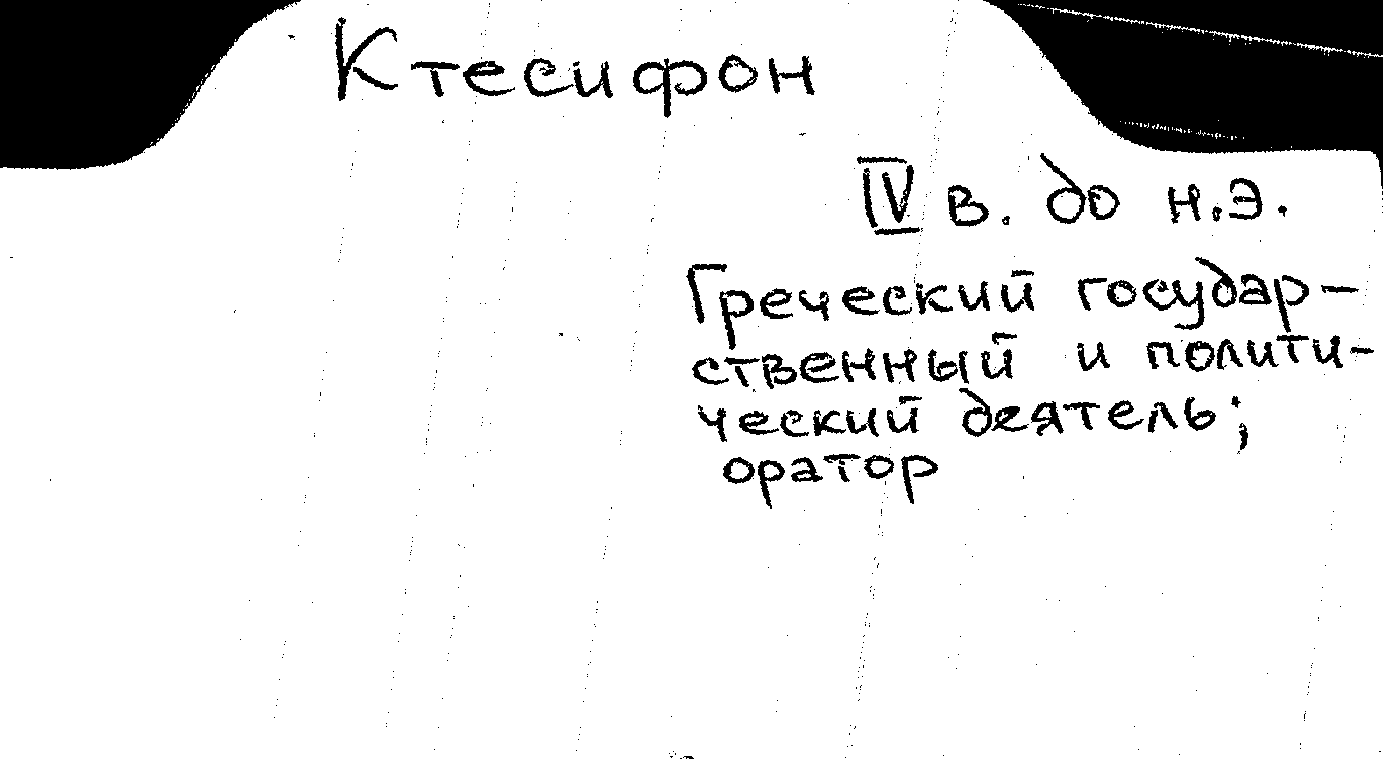 Ктесифон
IV в. до н.э.
Греческий государ-
ственный и полити-
ческий деятель;
оратор